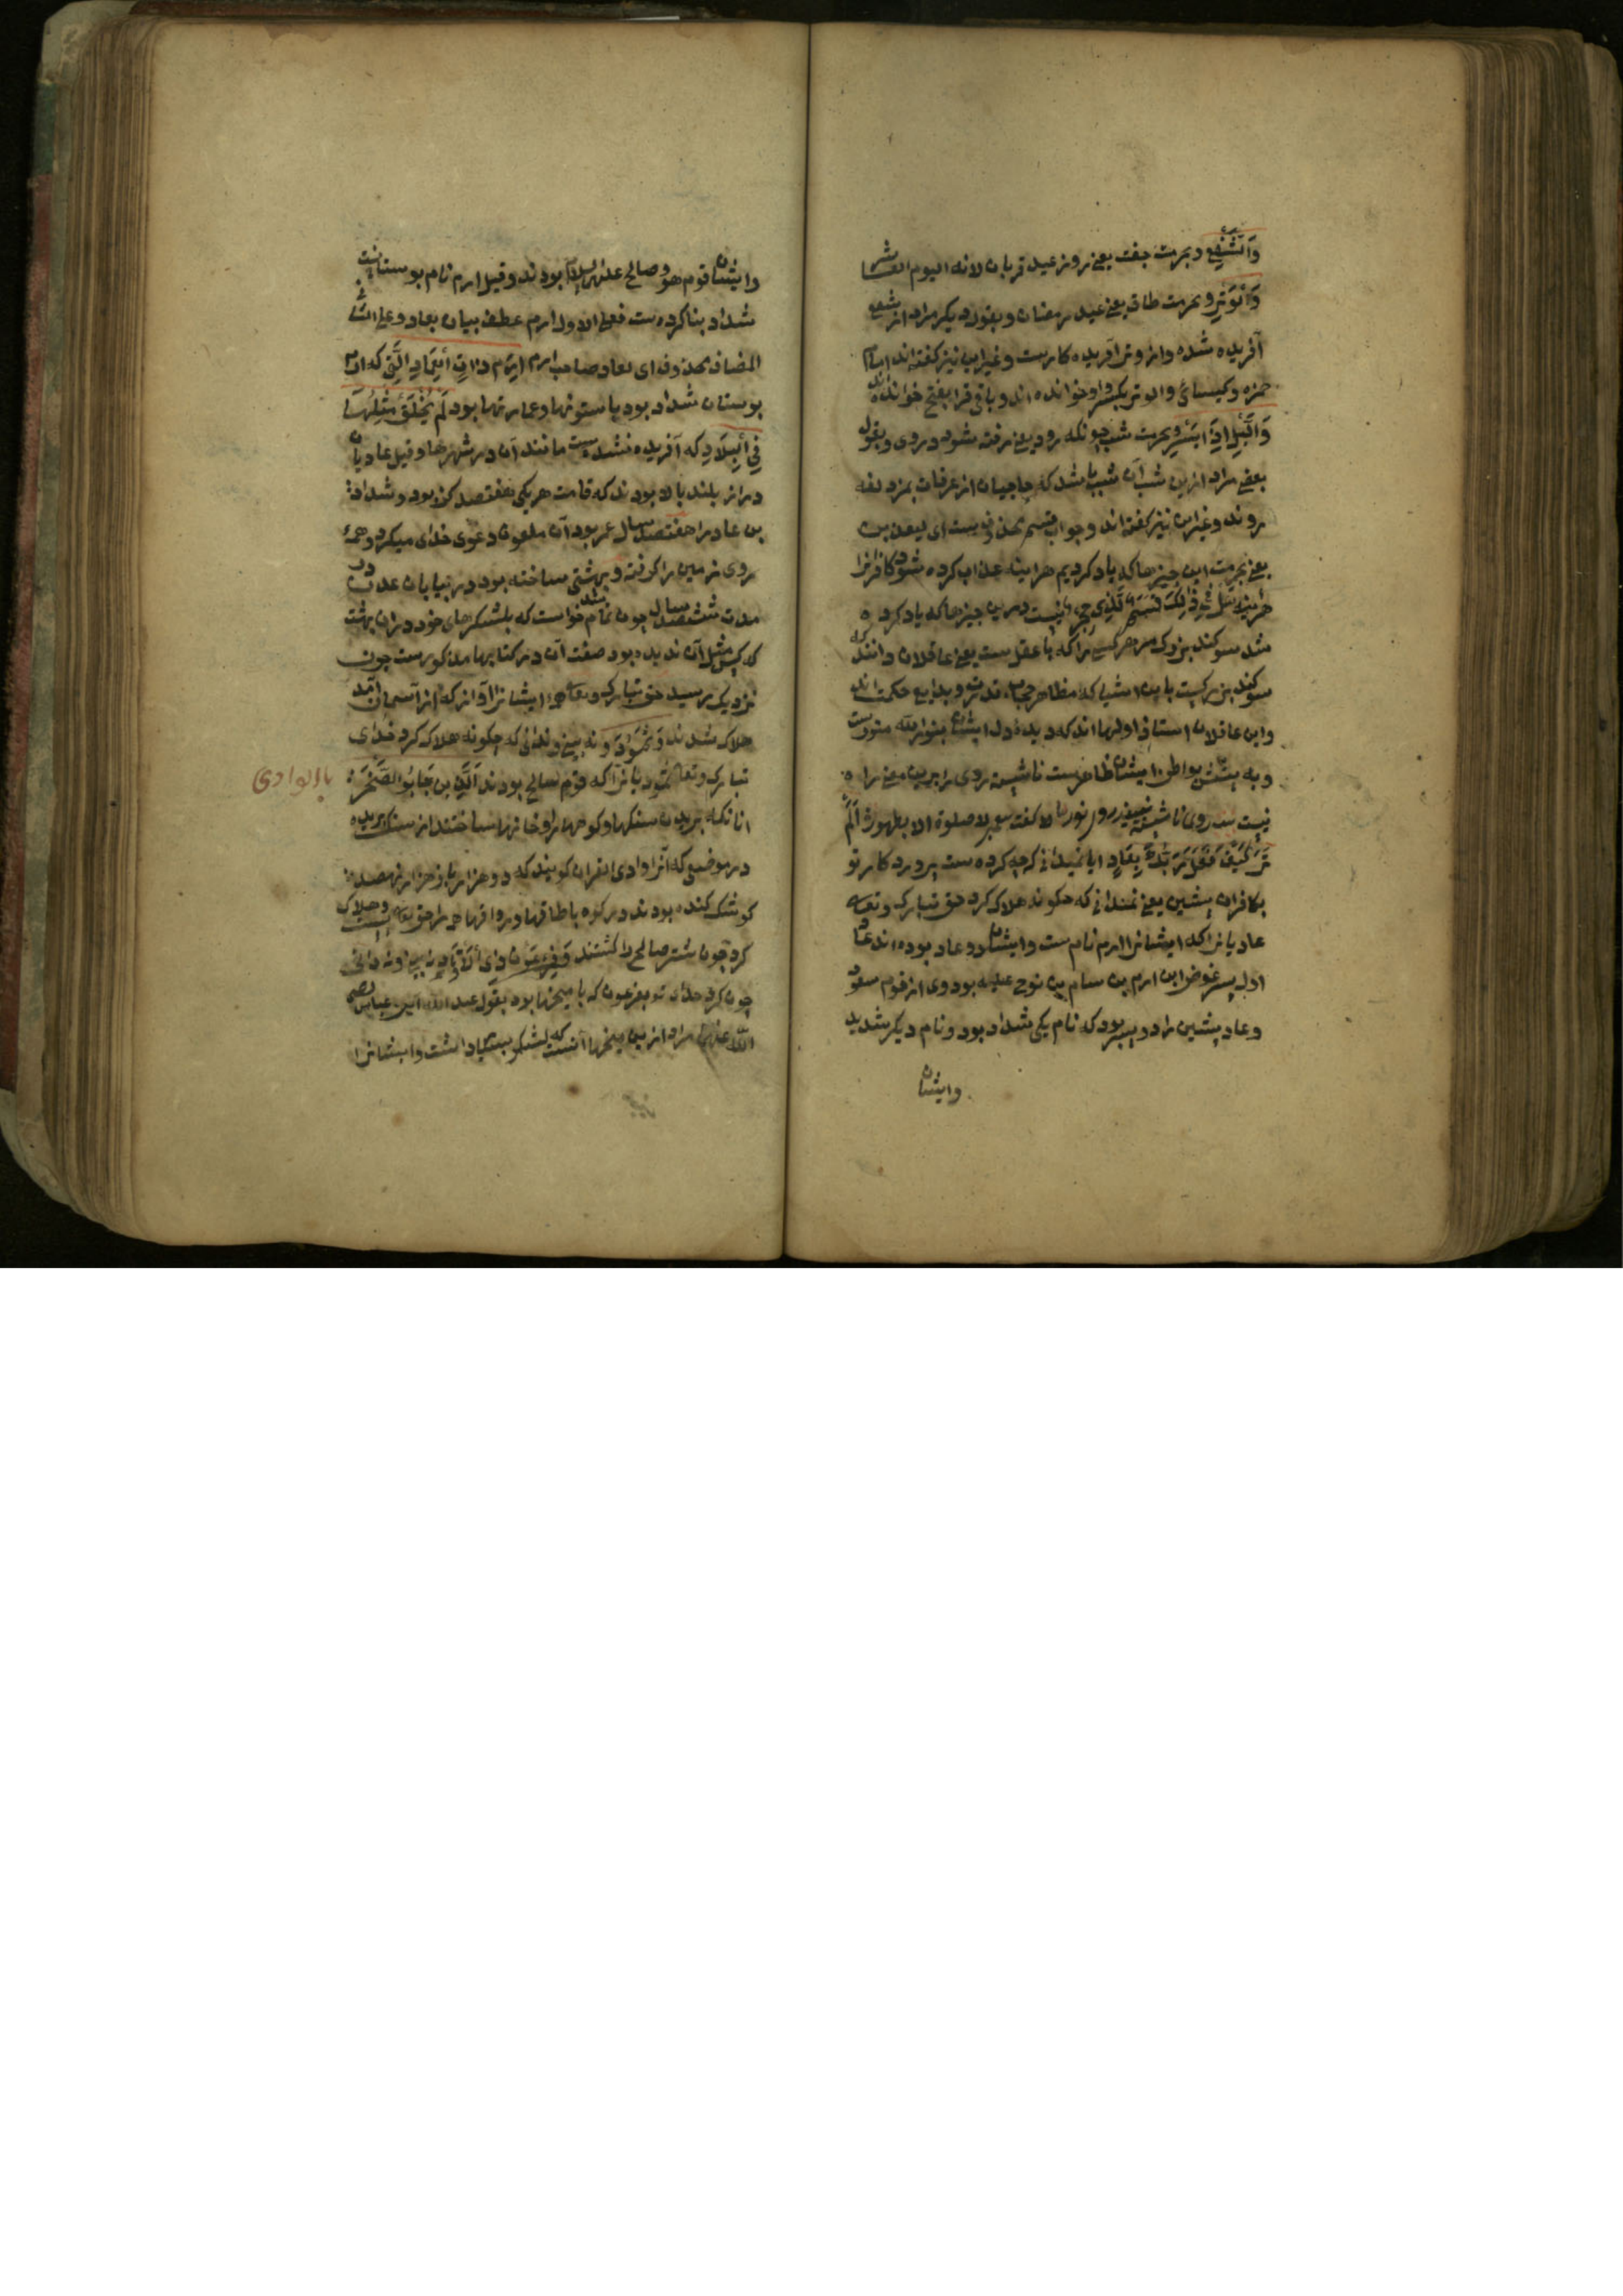 وَالشَّفْعِ وبحرمت جفت یعنی روز عید قربان لانه الیوم العاشر
وَالْوَتْرِ وبحرمت طاق یعنی عید رمضان وبقول دیکر مراد از شفع
آفریده شده واز وتر آفریده کارست وغیر این نیز کفته اند امام
حمزه وکیسائی والوتر بکسر واو خوانده اند وباقی قرا بفتح خوانده اند
وَالَّیْلِ اِذَا یَسْرِ وبحرمت شب چونکه رود یعنی رفته شود دروی وبقول
بعضی مراد ازین شب آن شب باشد که حاجیان از عرفات بمزدلفه
روند وغیر این نیز کفته اند وجواب قسم محذوفست ای لیعذبن
یعنی بحرمت این چیزها که یاد کردیم هراینه عذاب کرده شود کافرانرا
هراینه هَلْ فِی ذٰلِکَ قَسَمٌ لِّذِی حِجْرٍ نیست درین چیزها که یاد کرده
شد سوکند بزرک مر هرکسی را که با عقل ست یعنی عاقلان دانند که
سوکند بزرکیست باین اشیا که مظاهر عجایب قدرت وبدایع حکمت اند
واین عاقلان استاذ اولها اند که دیده دل ایشان بنور الله منورست
وبه بواطن ایشان ظاهرست ناشسته روی را برین معنی راه
نیست روی ناشسته نبیند روی نور لا کفت پیغمبر لا صلوة الا بطهور اَلَمْ
تَرَ کَیْفَ فَعَلَ رَبُّکَ بِعَادٍ ایا نمیدانی که چه کرده ست پروردکار تو
بکافران پیشین یعنی نمیدانی که چکونه هلاک کرد حق تبارک وتعالی
عادیانرا که ایشانرا ارم نام ست وایشان دو عاد بوده اند عاد
اول پسر عوض ابن ارم بن سام بن نوح علیه بود وی از قوم
وعاد پیشین را دو پسر بود که نام یکی شداد بود ونام دیکر شدید
وایشان
وایشان قوم هود وصالح علیهما السلام بودند وقیل ارم نام بوستانیست
شداد بنا کرده ست فعلی الاول ارم عطف بیان بعاد وعلی الثانی
المضاف محذوف ای بعاد صاحب ارم اِرَمَ ذَاتِ الْعِمَادِ الَّتِی که ارم
بوستان شداد بود با ستونها وعمارتها بود لَمْ یُخْلَقْ مِثْلُهَا
فِی الْبِلَادِ که آفریده نشده ست مانند آن در شهرها وقیل عادیان
دراز بلند بالا بودند که قامت هر یکی هفتصد کز بود وشداد
بن عاد را هفتصد سال عمر بود آن ملعون دعوی خدای میکرد وهمهٔ
روی زمین را کرفته وبهشتی ساخته بود در بیابان عدن در
مدت ششصد سال چون تمام شد خواست که بلشکرهای خود دران بهشت
که کس مثل آن ندیده بود صفت آن در کتابها مذکورست چون
نزدیک رسید حق تبارک وتعالی همهٔ ایشانرا آوازی که از آسمان آمد
هلاک شدند وَثَمُودَ ونه بینی وندانی که چکونه هلاک کرد خدای
تبارک وتعالی ثمودیانرا که قوم صالح بودند الَّذِینَ جَابُوا الصَّخْرَ
بالوادی
انانکه بریدن سنکها وکوهها را وخانها ساختند از سنک بریده
در موضعی که آنرا وادی القری کویند که دو هزار باز هزار نهصد
کوشک کنده بودند در کوه با طاقها ورواقها همه را حق تعالی هلاک
کرد چون شتر صالح را کشتند وَفِرْعَوْنَ ذِی الْاَوْتَادِ نه بینی ونه دانی
چون کرد خدای تو بفرعون که با میخها بود بقول عبد الله ابن عباس رضی
الله عنهما مراد ازین میخها آنست که لشکر بسیار داشت وایشانرا